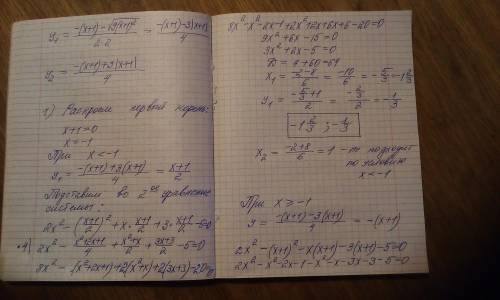 y₁ = (-(x+1) - √9(x+1)²)/(2·2) = (-(x+1)-3|x+1|)/4
y₂ = (-(x+1)+3|x+1|)/4
1) Раскроем первый корень:
x+1=0
x=-1
При x < -1
y₁ = (-(x+1)+3(x+1))/4 = (x+1)/2
Подставим во 2ое уравнение
системы:
2x² - ((x+1)/2)² + x·(x+1)/2 + 3·(x+1)/2 - 5=0
2x² - (x²+2x+1)/4 + (x²+x)/2 + (3x+3)/2 - 5=0
8x² - (x²+2x+1)+2(x²+x)+2(3x+3)-20=0
8x²-x²-2x-1+2x²+2x+6x+6-20=0
9x²+6x-15=0
3x²+2x-5=0
D = 4+60=64
x₁ = (-2-8)/6 = -10/6 = -5/3 = -1 2/3
y₁ = (-5/3+1)/2 = (-2/3)/2 = -1/3
-1 2/3 ; -1/3
x₂ = (-2+8)/6 = 1 - подходит
по условию
x < -1
При x > -1
y = (-(x+1)-3(x+1))/4 = -(x+1)
2x² - (x+1)² - x(x+1) - 3(x+1) - 5=0
2x² - x² - 2x - 1 - x² - x - 3x - 3 - 5=0